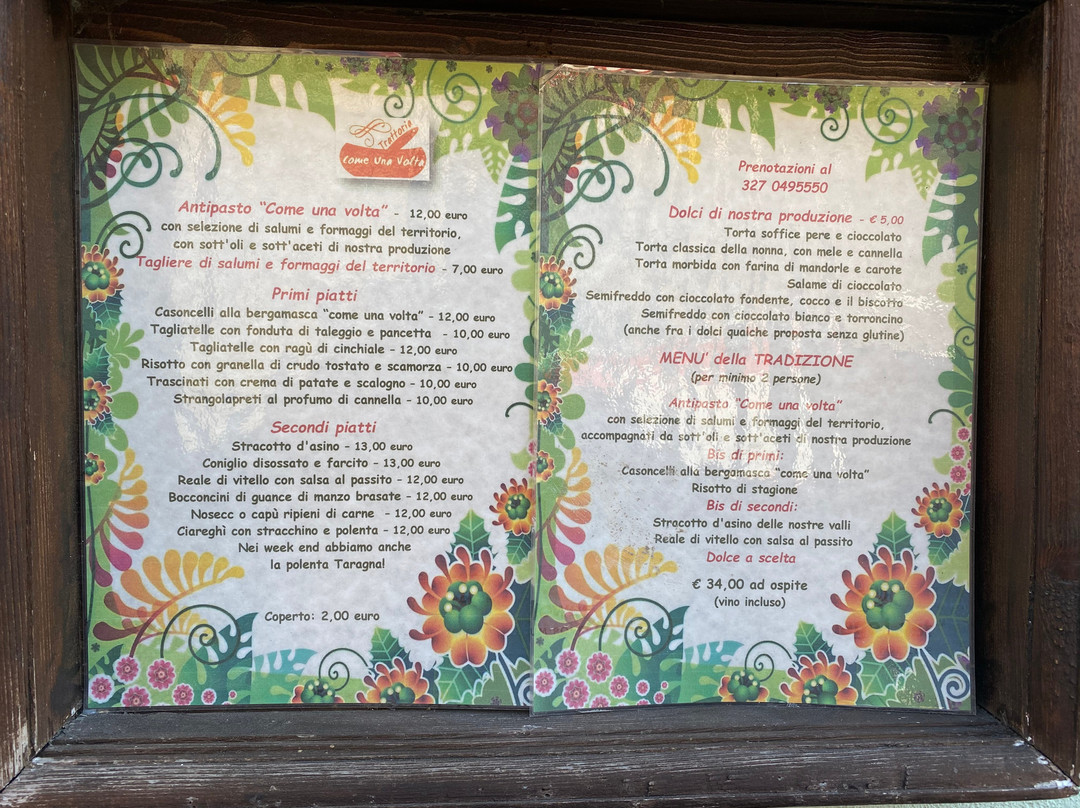 Trattoria
Come una Volta
Antipasto "Come una volta" - 12,00 euro
con selezione di salumi e formaggi del territorio,
con sott'oli e sott'aceti di nostra produzione
Tagliere di salumi e formaggi del territorio - 7,00 euro
Primi piatti
Casoncelli alla bergamasca "come una volta" - 12,00 euro
Tagliatelle con fonduta di taleggio e pancetta - 10,00 euro
Tagliatelle con ragù di cinchiale - 12,00 euro
Risotto con granella di crudo tostato e scamorza - 10,00 euro
Trascinati con crema di patate e scalogno - 10,00 euro
Strangolapreti al profumo di cannella - 10,00 euro
Secondi piatti
Stracotto d'asino - 13,00 euro
Coniglio disossato e farcito - 13,00 euro
Reale di vitello con salsa al passito - 12,00 euro
Bocconcini di guance di manzo brasate - 12,00 euro
Nosecc o capù ripieni di carne - 12,00 euro
Ciareghì con stracchino e polenta - 12,00 euro
Nei week end abbiamo anche
la polenta Taragna!
Coperto: 2,00 euro
Prenotazioni al
327 0495550
Dolci di nostra produzione - € 5,00
Torta soffice pere e cioccolato
Torta classica della nonna, con mele e cannella
Torta morbida con farina di mandorle e carote
Salame di cioccolato
Semifreddo con cioccolato fondente, cocco e il biscotto
Semifreddo con cioccolato bianco e torroncino
(anche fra i dolci qualche proposta senza glutine)
MENU' della TRADIZIONE
(per minimo 2 persone)
Antipasto "Come una volta"
con selezione di salumi e formaggi del territorio,
accompagnati da sott'oli e sott'aceti di nostra produzione
Bis di primi:
Casoncelli alla bergamasca "come una volta"
Risotto di stagione
Bis di secondi:
Stracotto d'asino delle nostre valli
Reale di vitello con salsa al passito
Dolce a scelta
€ 34,00 ad ospite
(vino incluso)